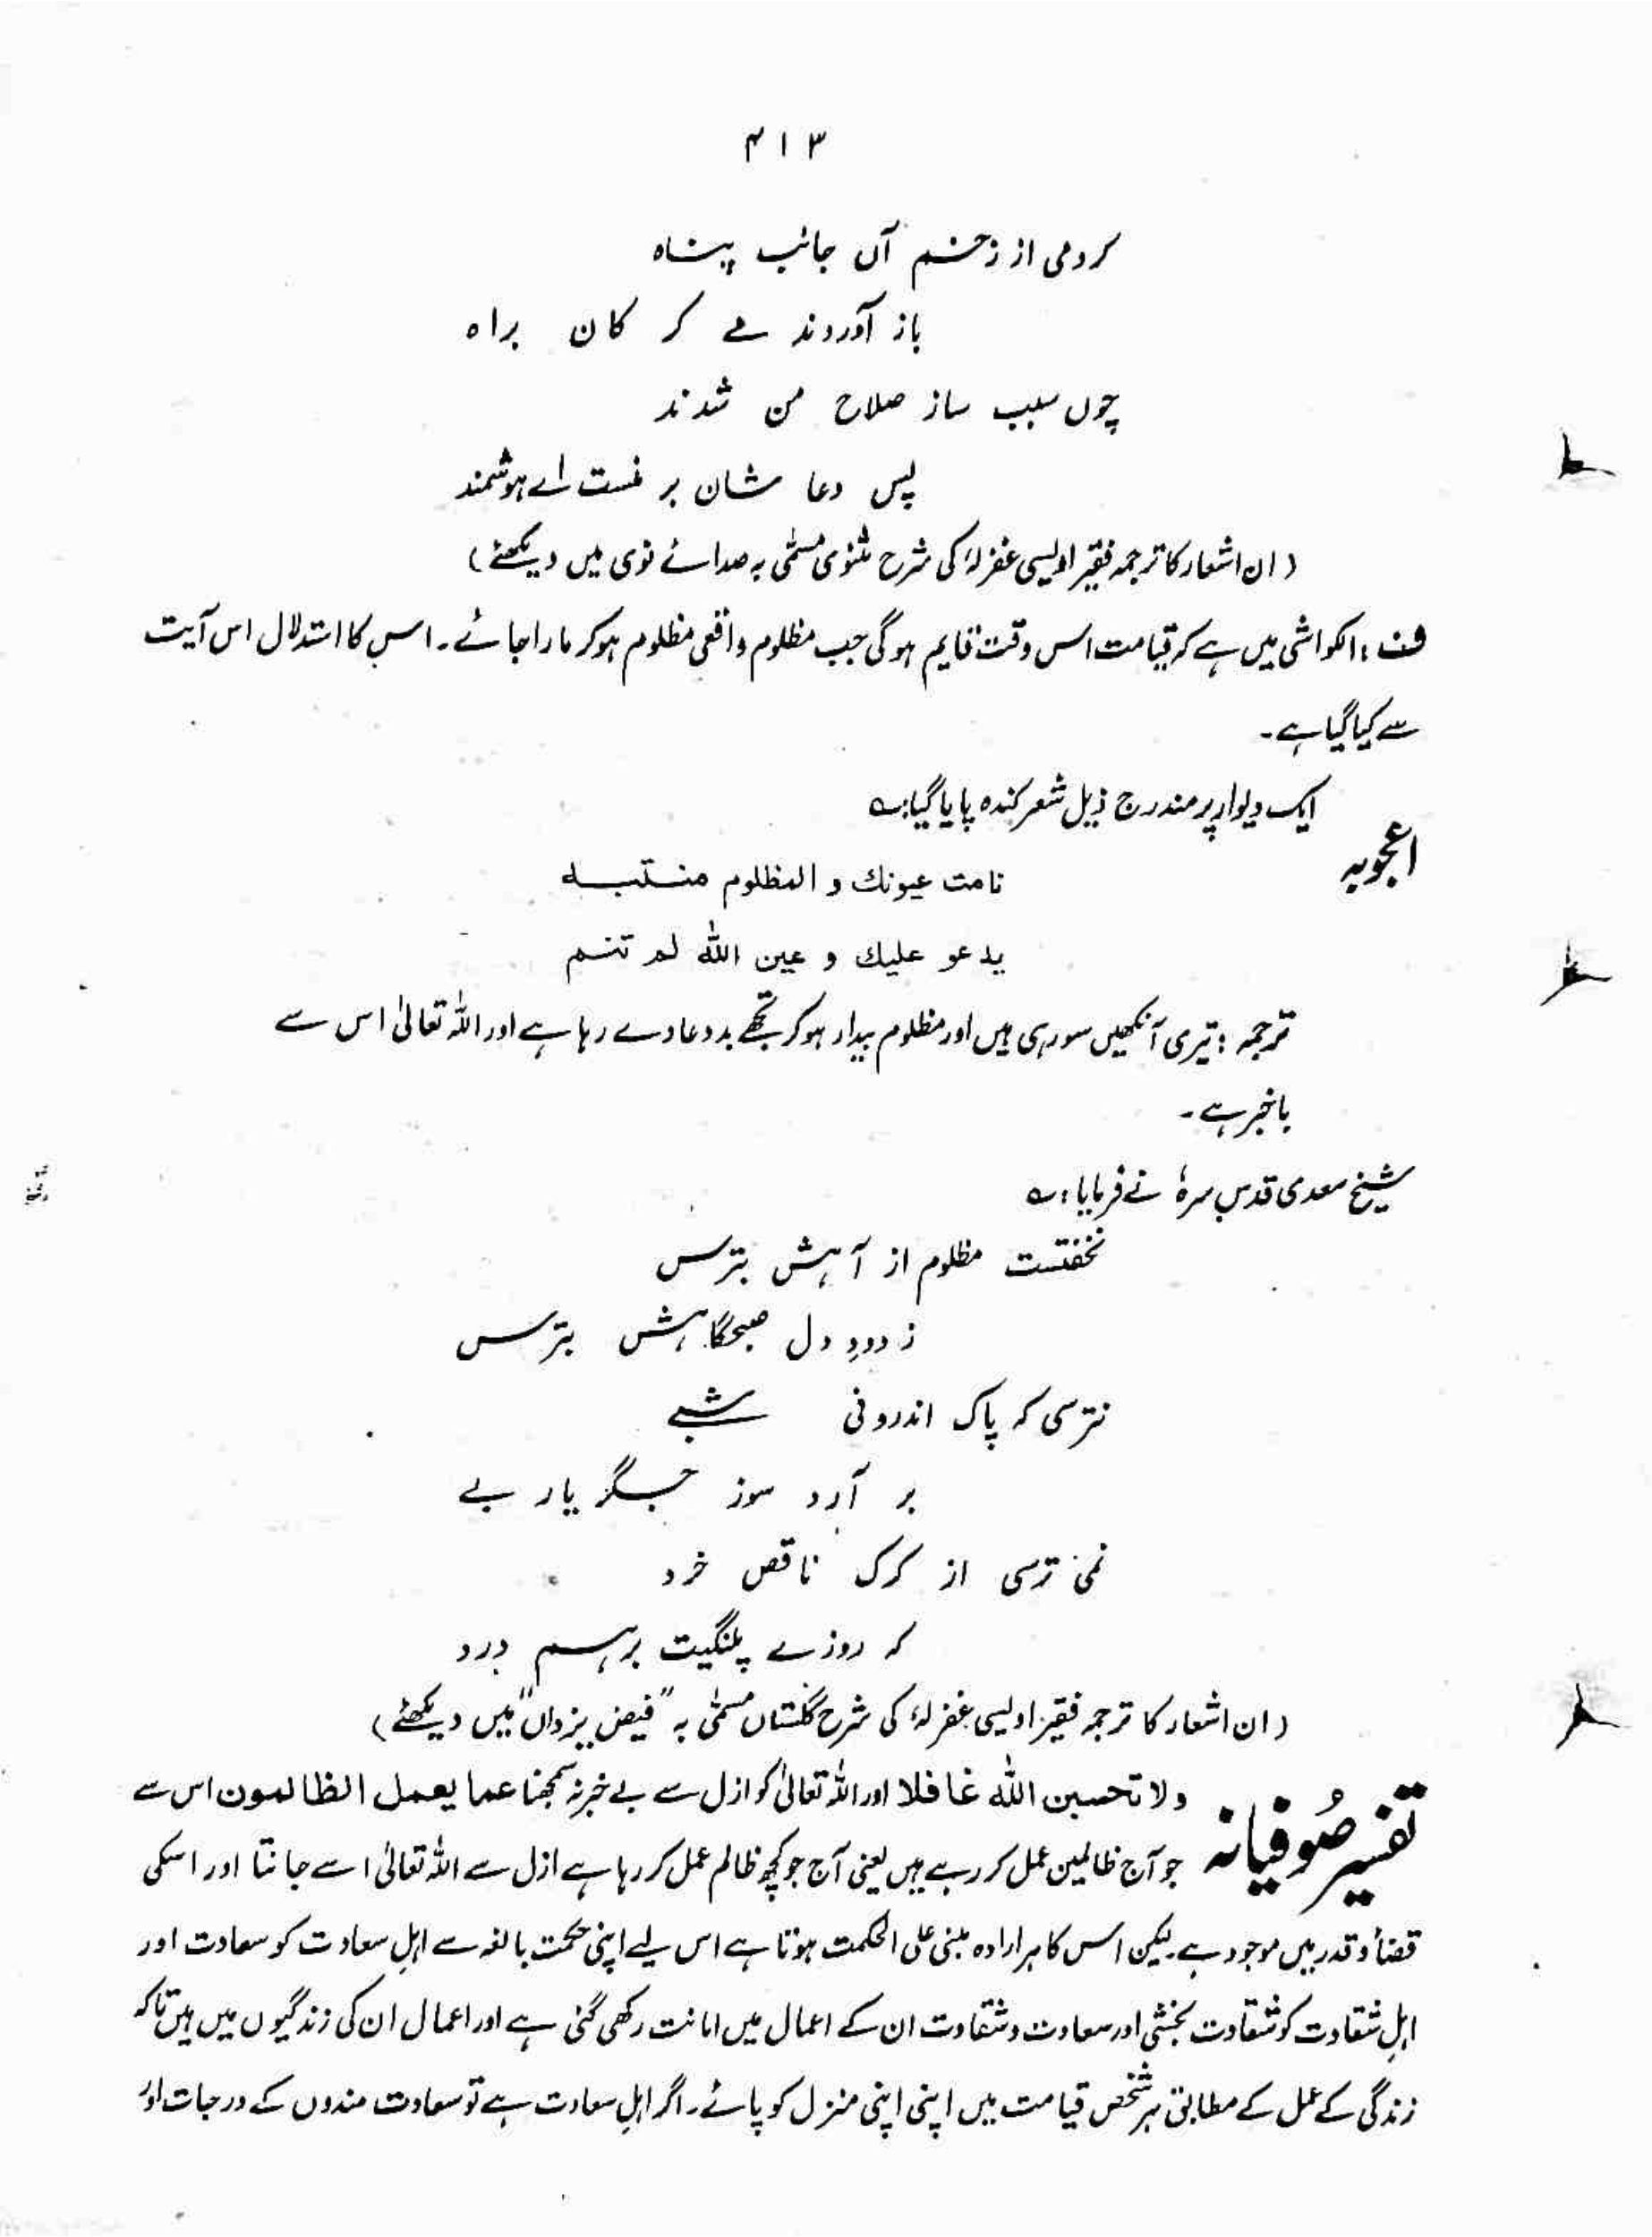 ۴۱۳
کردمی از زخم آں جانب پناہ
باز آوردند مے کر کان براہ
چوں سبب ساز صلاح من شدند
پس دعا شان بر منست اے ہوشمند
(ان اشعار کا ترجمہ فقیر اویسی غفرلہٗ کی شرح مثنوی مسمّٰی بہ صدائے نوی میں دیکھئے)
ف : الکواشی میں ہے کہ قیامت اس وقت قایم ہوگی جب مظلوم واقعی مظلوم ہوکر مارا جائے۔ اس کا استدلال اس آیت
سے کیا گیا ہے۔
ایک دیوار پر مندرج ذیل شعر کندہ پایا گیا:؎
اعجوبہ
نامت عيونك و المظلوم منتبه
يدعو عليك و عين الله لم تنم
ترجمہ : تیری آنکھیں سو رہی ہیں اور مظلوم بیدار ہوکر تجھے بددعا دے رہا ہے اور اللہ تعالیٰ اس سے
باخبر ہے۔
شیخ سعدی قدس سرہٗ نے فرمایا : ؎
نخفتست مظلوم از آہش بترس
ز دودِ دل صبحگاہش بترس
نترسی کہ پاک اندرونی شبے
بر آرد سوز جگر یاربے
نمی ترسی از کرک ناقص خرد
کہ روزے پلنگیت برہم درد
(ان اشعار کا ترجمہ فقیر اویسی غفرلہٗ کی شرح گلستاں مسمّٰی بہ "فیض یزداں" میں دیکھئے)
تفسیر صُوفیانہ ولا تحسبن الله غافلا اور اللہ تعالیٰ کو ازل سے بے خبر نہ سمجھنا عما يعمل الظالمون اس سے
جو آج ظالمین عمل کر رہے ہیں یعنی آج جو کچھ ظالم عمل کر رہا ہے ازل سے اللہ تعالیٰ اسے جانتا اور اسکی
قضأ و قدر میں موجود ہے لیکن اس کا ہر ارادہ مبنی علی الحکمت ہوتا ہے اس لیے اپنی حکمت بالغہ سے اہلِ سعادت کو سعادت اور
اہلِ شقاوت کو شقاوت بخشی اور سعادت و شقاوت ان کے اعمال میں امانت رکھی گئی ہے اور اعمال ان کی زندگیوں میں ہیں تاکہ
زندگی کے عمل کے مطابق ہر شخص قیامت میں اپنی اپنی منزل کو پائے۔ اگر اہلِ سعادت ہے تو سعادت مندوں کے درجات اور